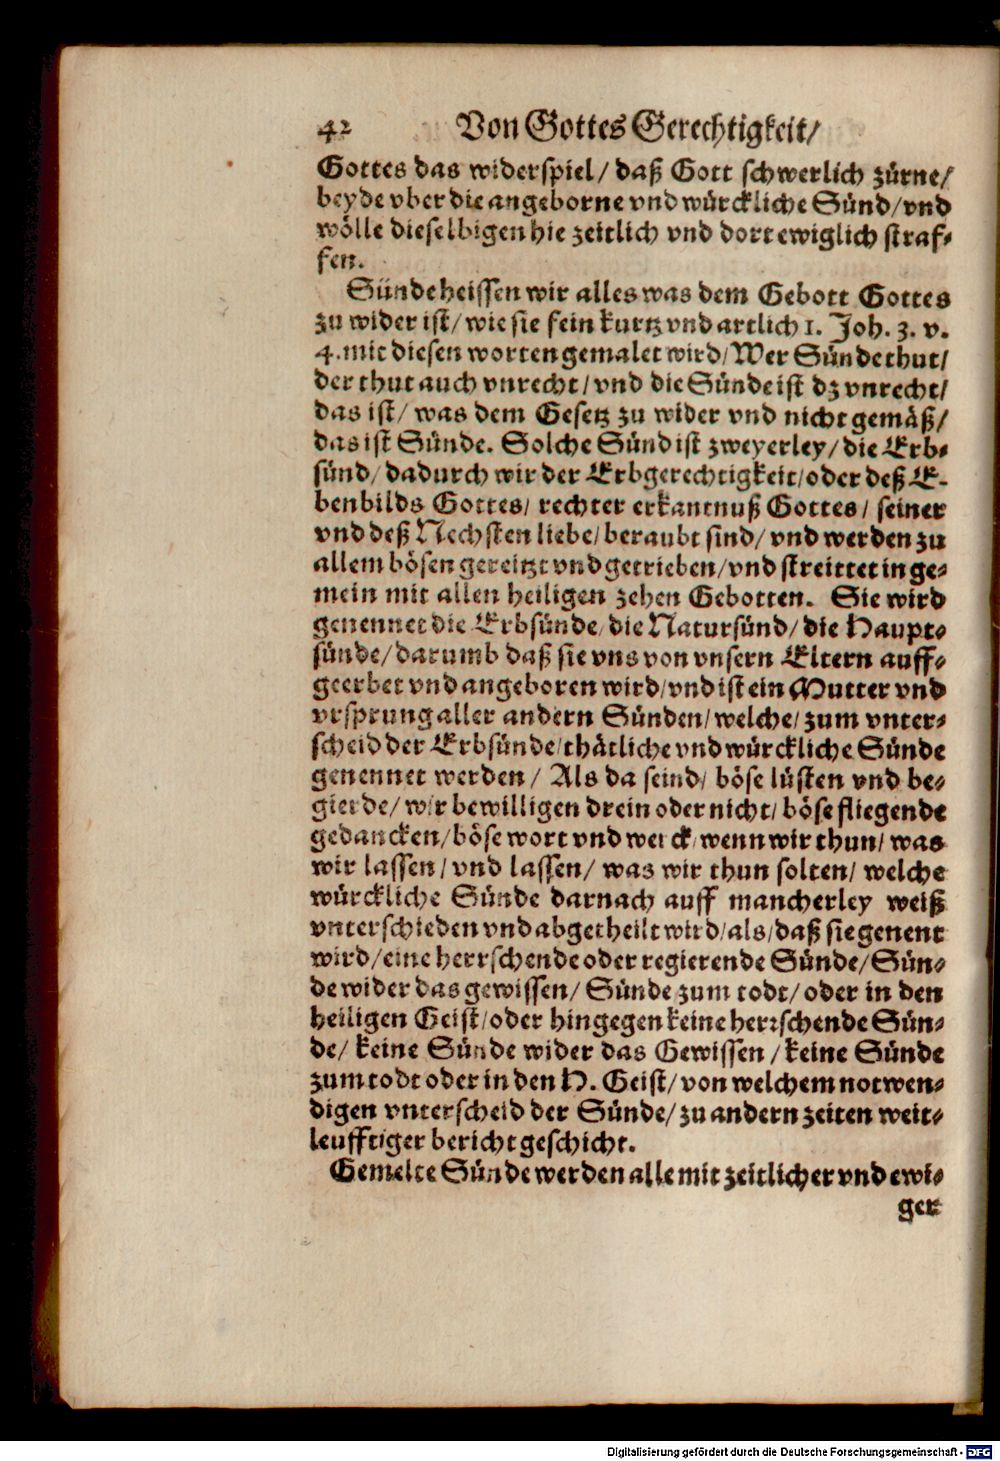 42 Von Gottes Gerechtigkeit/
Gottes das widerspiel/ daß Gott schwerlich zürne/
beyde vber die angeborne vnd würckliche Sünd/ vnd
wölle dieselbigen hie zeitlich vnd dort ewiglich straf-
fen.
Sünde heissen wir alles was dem Gebott Gottes
zu wider ist/ wie sie fein kurtz vnd artlich 1. Joh. 3. v.
4. mit diesen worten gemalet wird/ Wer Sünde thut/
der thut auch vnrecht/ vnd die Sünde ist dz vnrecht/
das ist/ was dem Gesetz zu wider vnd nicht gemäß/
das ist Sünde. Solche Sünd ist zweyerley/ die Erb-
sünd/ dadurch wir der Erbgerechtigkeit/ oder deß E-
benbilds Gottes/ rechter erkantnuß Gottes/ seiner
vnd deß Nechsten liebe/ beraubt sind/ vnd werden zu
allem bösen gereitzt vnd getrieben/ vnd streittet in ge-
mein mit allen heiligen zehen Gebotten. Sie wird
genennet die Erbsünde/ die Natursünd/ die Haupt-
sünde/ darumb daß sie vns von vnsern Eltern auff-
geerbet vnd angeboren wird/ vnd ist ein Mutter vnd
vrsprung aller andern Sünden/ welche/ zum vnter-
scheid der Erbsünde/ thätliche vnd würckliche Sünde
genennet werden/ Als da seind/ böse lüsten vnd be-
gierde/ wir bewilligen drein oder nicht/ böse fliegende
gedancken/ böse wort vnd werck/ wenn wir thun/ was
wir lassen/ vnd lassen/ was wir thun solten/ welche
würckliche Sünde darnach auff mancherley weiß
vnterschieden vnd abgetheilt wird/ als/ daß sie genent
wird/ eine herrschende oder regierende Sünde/ Sün-
de wider das gewissen/ Sünde zum todt/ oder in den
heiligen Geist/ oder hingegen keine herrschende Sün-
de/ keine Sünde wider das Gewissen/ keine Sünde
zum todt oder in den H. Geist/ von welchem notwen-
digen vnterscheid der Sünde/ zu andern zeiten weit-
leufftiger bericht geschicht.
Gemelte Sünde werden alle mit zeitlicher vnd ewi-
ger
Digitalisierung gefördert durch die Deutsche Forschungsgemeinschaft - DFG